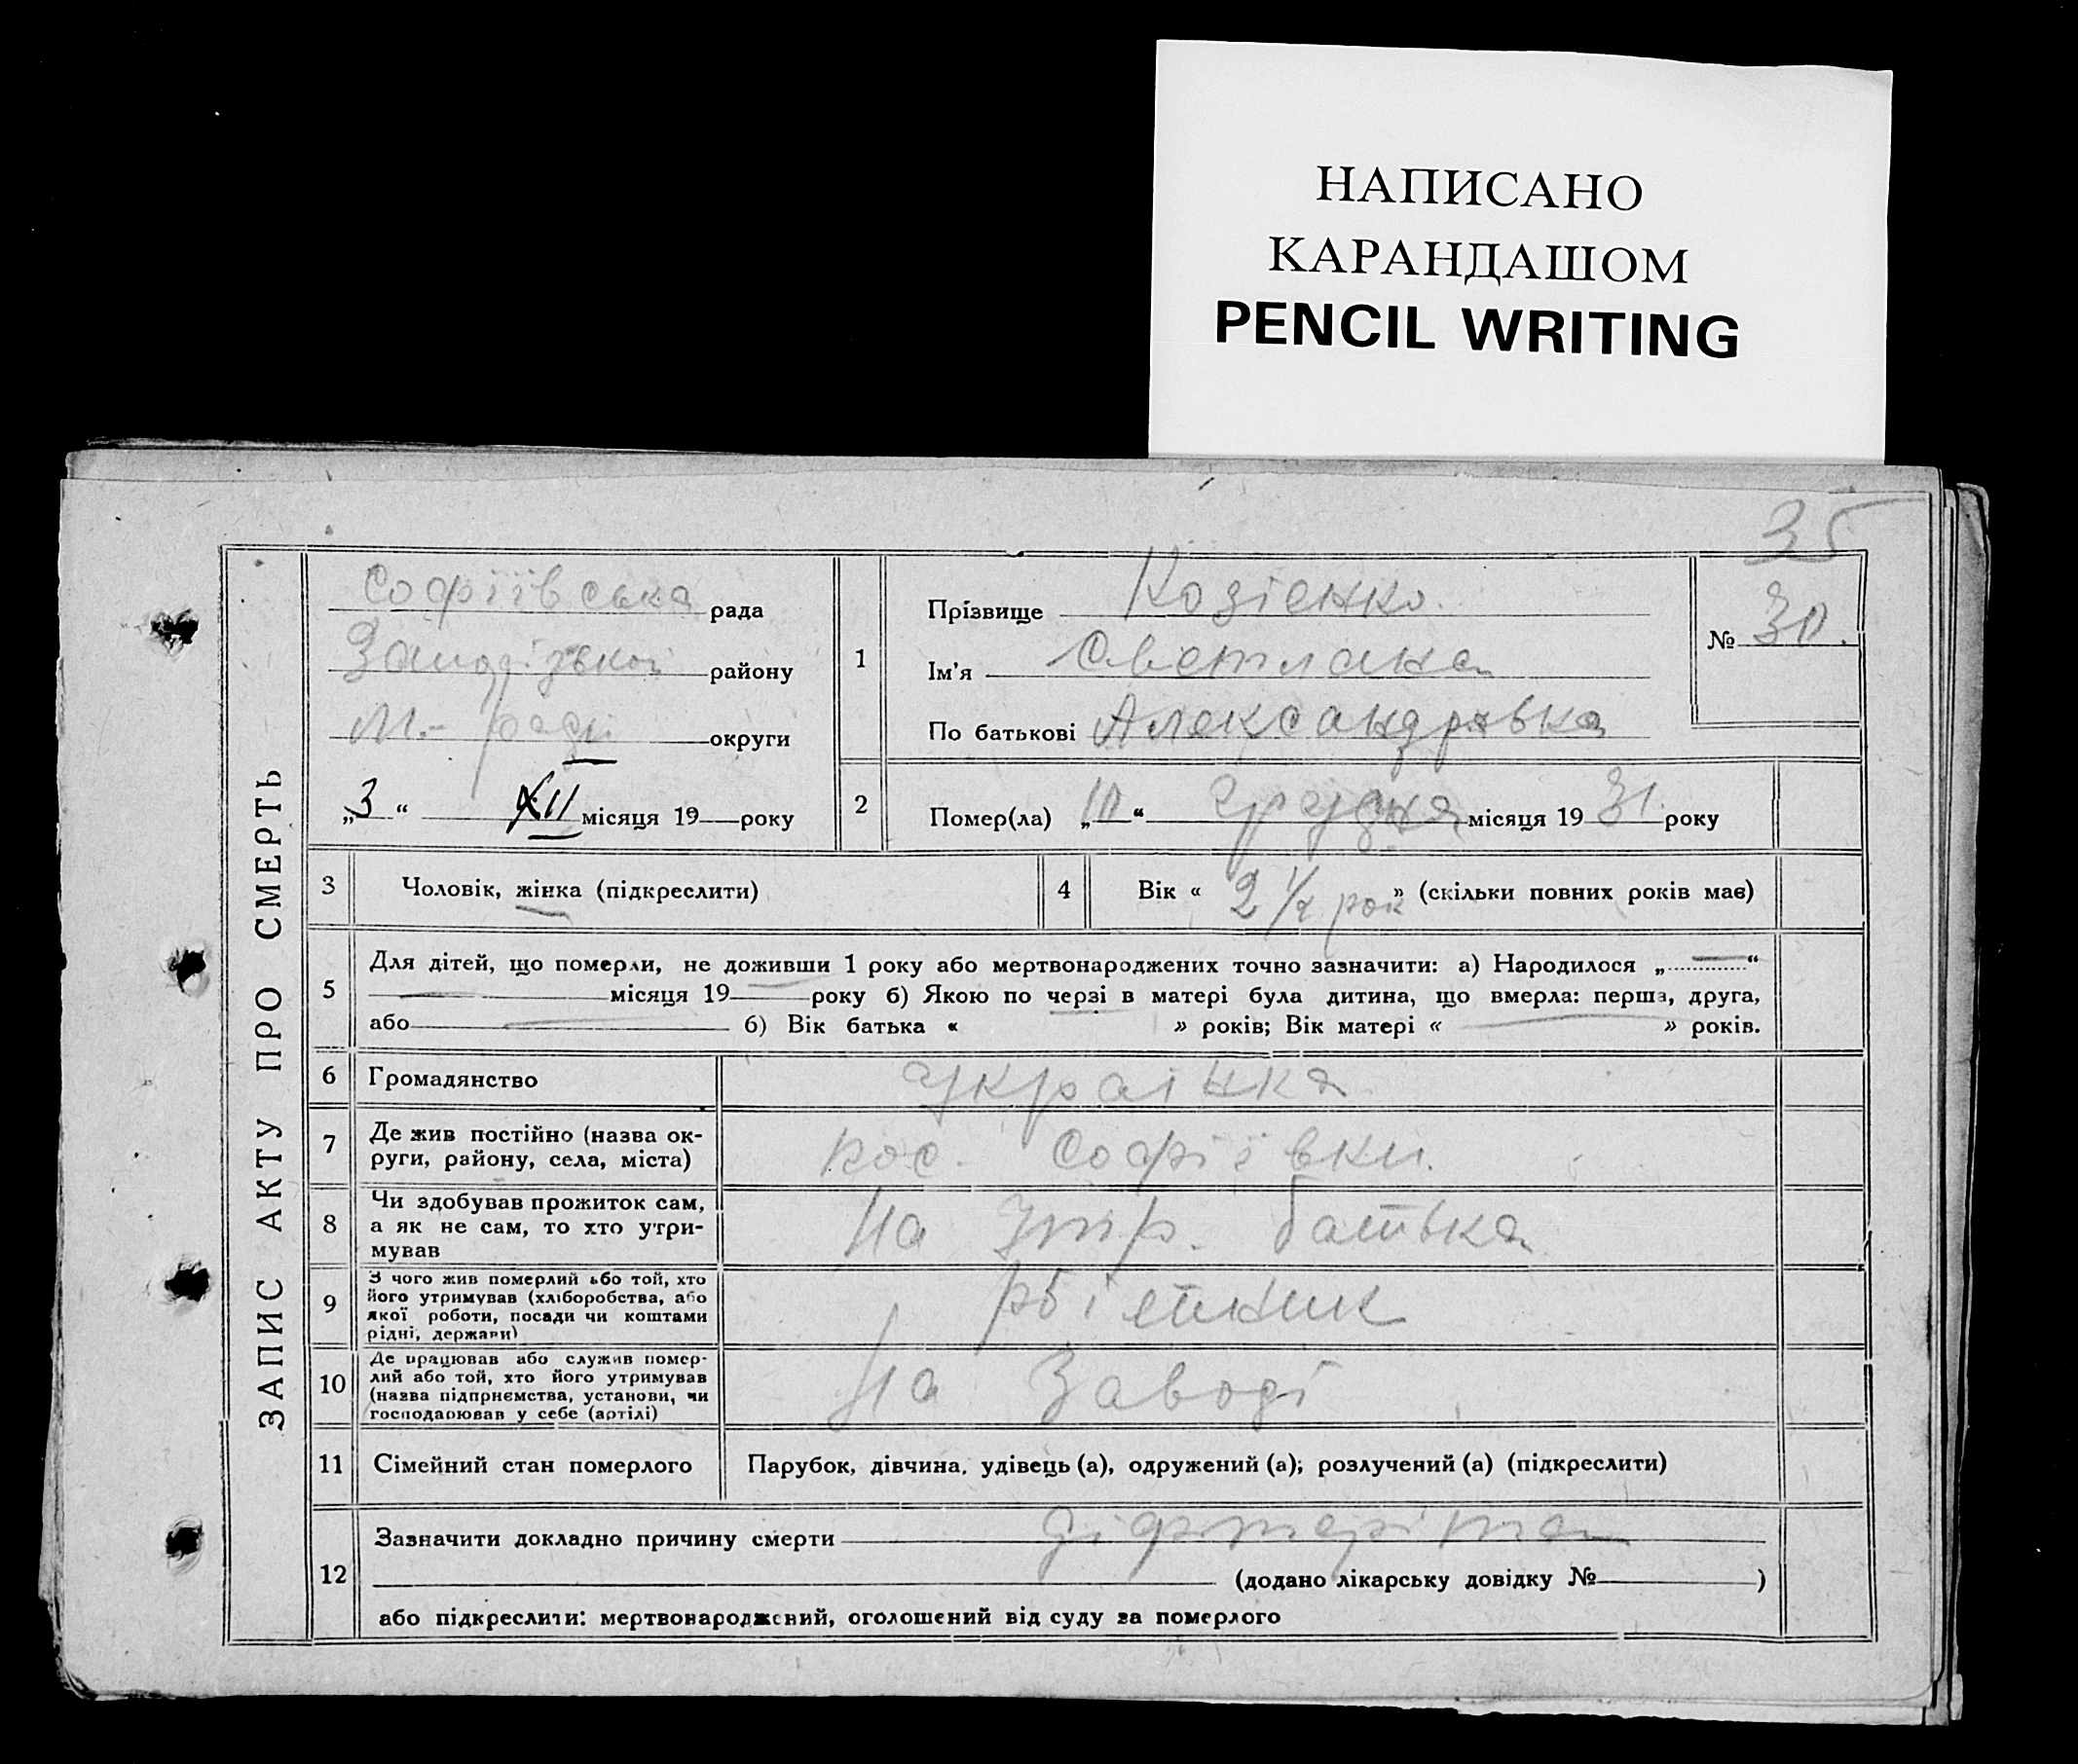 НАПИСАНО
КАРАНДАШОМ
PENCIL WRITING
35
ЗАПИС АКТУ ПРО СМЕРТЬ
Софіївська рада
району
М.- ради округи
„3“ XII місяця 19 року
1
Прізвище Козієнко.
Ім'я Светлана
По батькові Александровна
№ 30.
2
Помер(ла) „10“ грудня місяця 1931. року
3
Чоловік, жінка (підкреслити)
4
Вік « 2 1/2 рок » (скільки повних років має)
5
Для дітей, що померли, не доживши 1 року або мертвонароджених точно зазначити: а) Народилося „ “
місяця 19 року б) Якою по черзі в матері була дитина, що вмерла: перша, друга,
або б) Вік батька « » років; Вік матері « » років.
6
Громадянство
Українка
7
Де жив постійно (назва ок-
руги, району, села, міста)
пос. Софіївки.
8
Чи здобував прожиток сам,
а як не сам, то хто утри-
мував
На утр. батька
9
З чого жив померлий або той, хто
його утримував (хліборобства, або
якої роботи, посади чи коштами
рідні, держави)
рбітник
10
Де працював або служив помер-
лий або той, хто його утримував
(назва підприємства, установи, чи
господарював у себе (артілі)
На Заводі
11
Сімейний стан померлого
Парубок, дівчина, удівець (а), одружений (а); розлучений (а) (підкреслити)
12
Зазначити докладно причину смерти
(додано лікарську довідку № )
або підкреслити: мертвонароджений, оголошений від суду за померлого